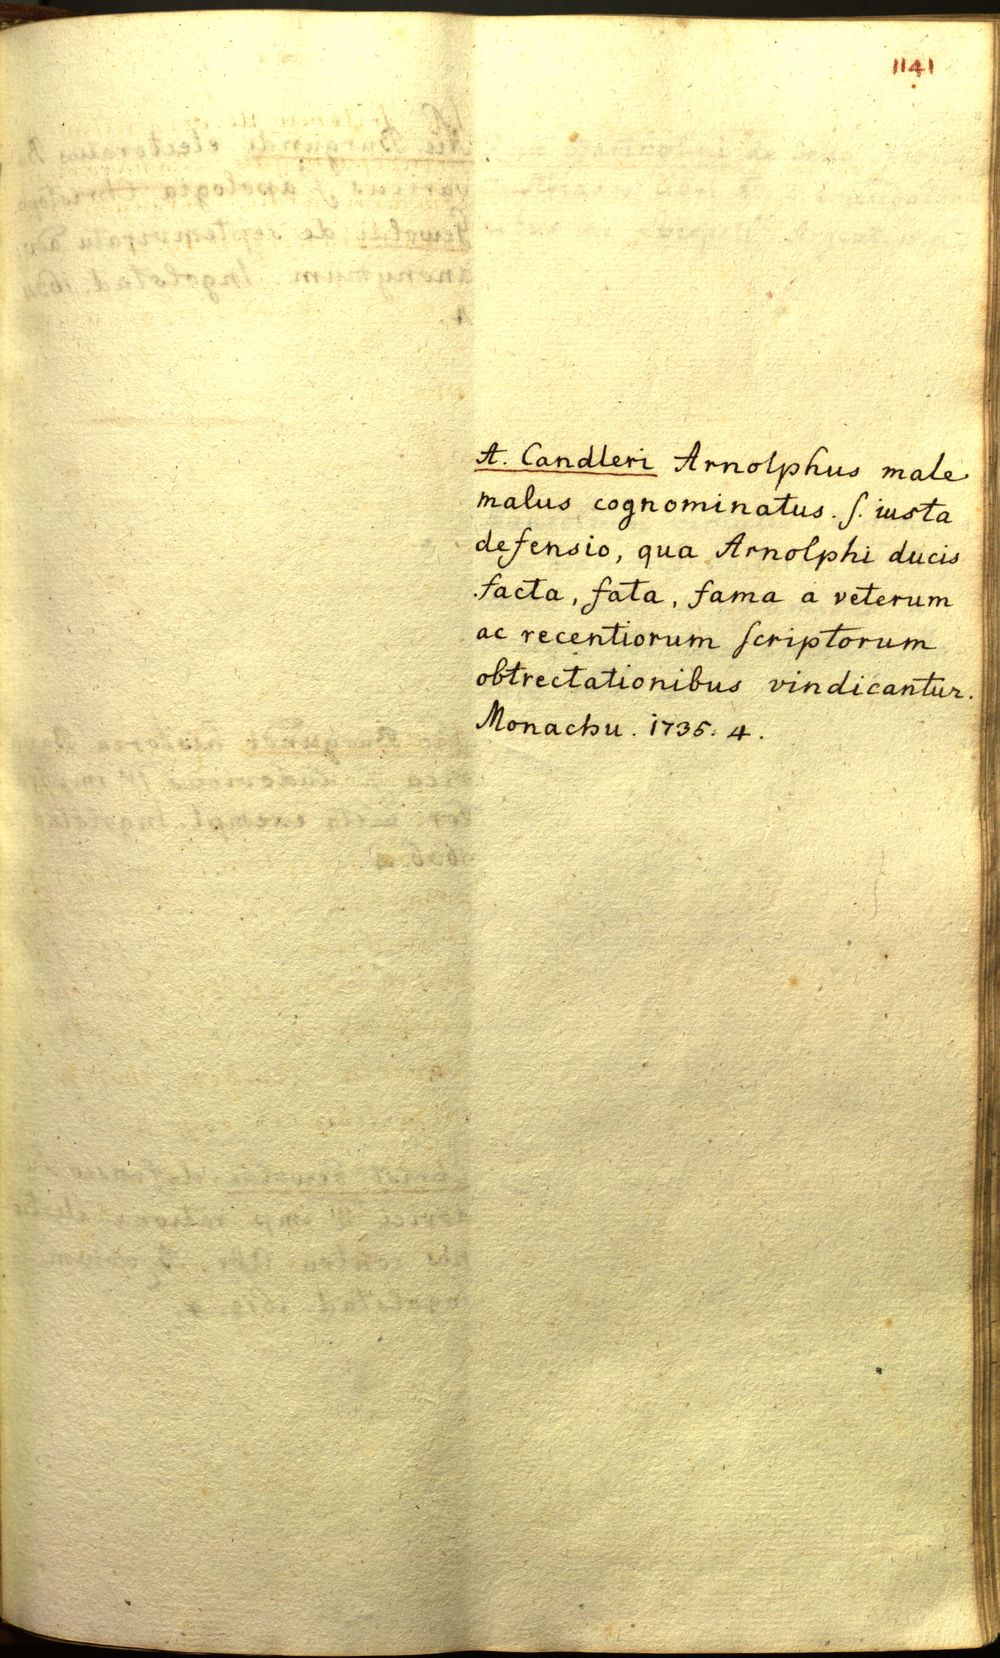 1141
A. Candleri Arnolphus male
malus cognominatus. ſ. iusta
defensio, qua Arnolphi ducis
facta, fata, fama a veterum
ac recentiorum ſcriptorum
obtrectationibus vindicantur.
Monachu. 1735. 4.